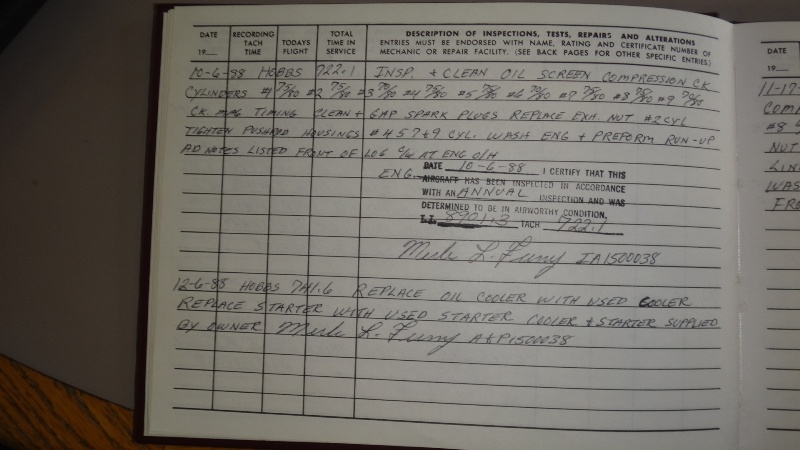 DATE
19__
RECORDING TACH TIME
TODAYS FLIGHT
TOTAL TIME IN SERVICE
DESCRIPTION OF INSPECTIONS, TESTS, REPAIRS AND ALTERATIONS
ENTRIES MUST BE ENDORSED WITH NAME, RATING AND CERTIFICATE NUMBER OF
MECHANIC OR REPAIR FACILITY. (SEE BACK PAGES FOR OTHER SPECIFIC ENTRIES.)
10-6-88 HOBBS 722.1 INSP. + CLEAN OIL SCREEN COMPRESSION CK
CYLINDERS #1 75/80 #2 75/80 #3 70/80 #4 #5 #6 70/80 #7 75/80 #8 #9 70/80
CK. MAG TIMING CLEAN + GAP SPARK PLUGS REPLACE EXH. NUT #2 CYL
TIGHTEN PUSHROD HOUSINGS #4 5 7 + 9 CYL. WASH ENG + PREFORM RUN-UP
AD NOTES LISTED FRONT OF LOG C/W AT ENG O/H
ENG. DATE 10-6-88 I CERTIFY THAT THIS
AIRCRAFT HAS BEEN INSPECTED IN ACCORDANCE
WITH AN ANNUAL INSPECTION AND WAS
DETERMINED TO BE IN AIRWORTHY CONDITION,
T.T. 8901.3 TACH 722.1
Merle L. Furry IA1500038
12-6-88 HOBBS 741.6 REPLACE OIL COOLER WITH USED COOLER
REPLACE STARTER WITH USED STARTER COOLER + STARTER SUPPLIED
BY OWNER Merle L. Furry A&P1500038
DATE
19__
11-17-
COMP
#8
NUT
LIN
WAS
FRO